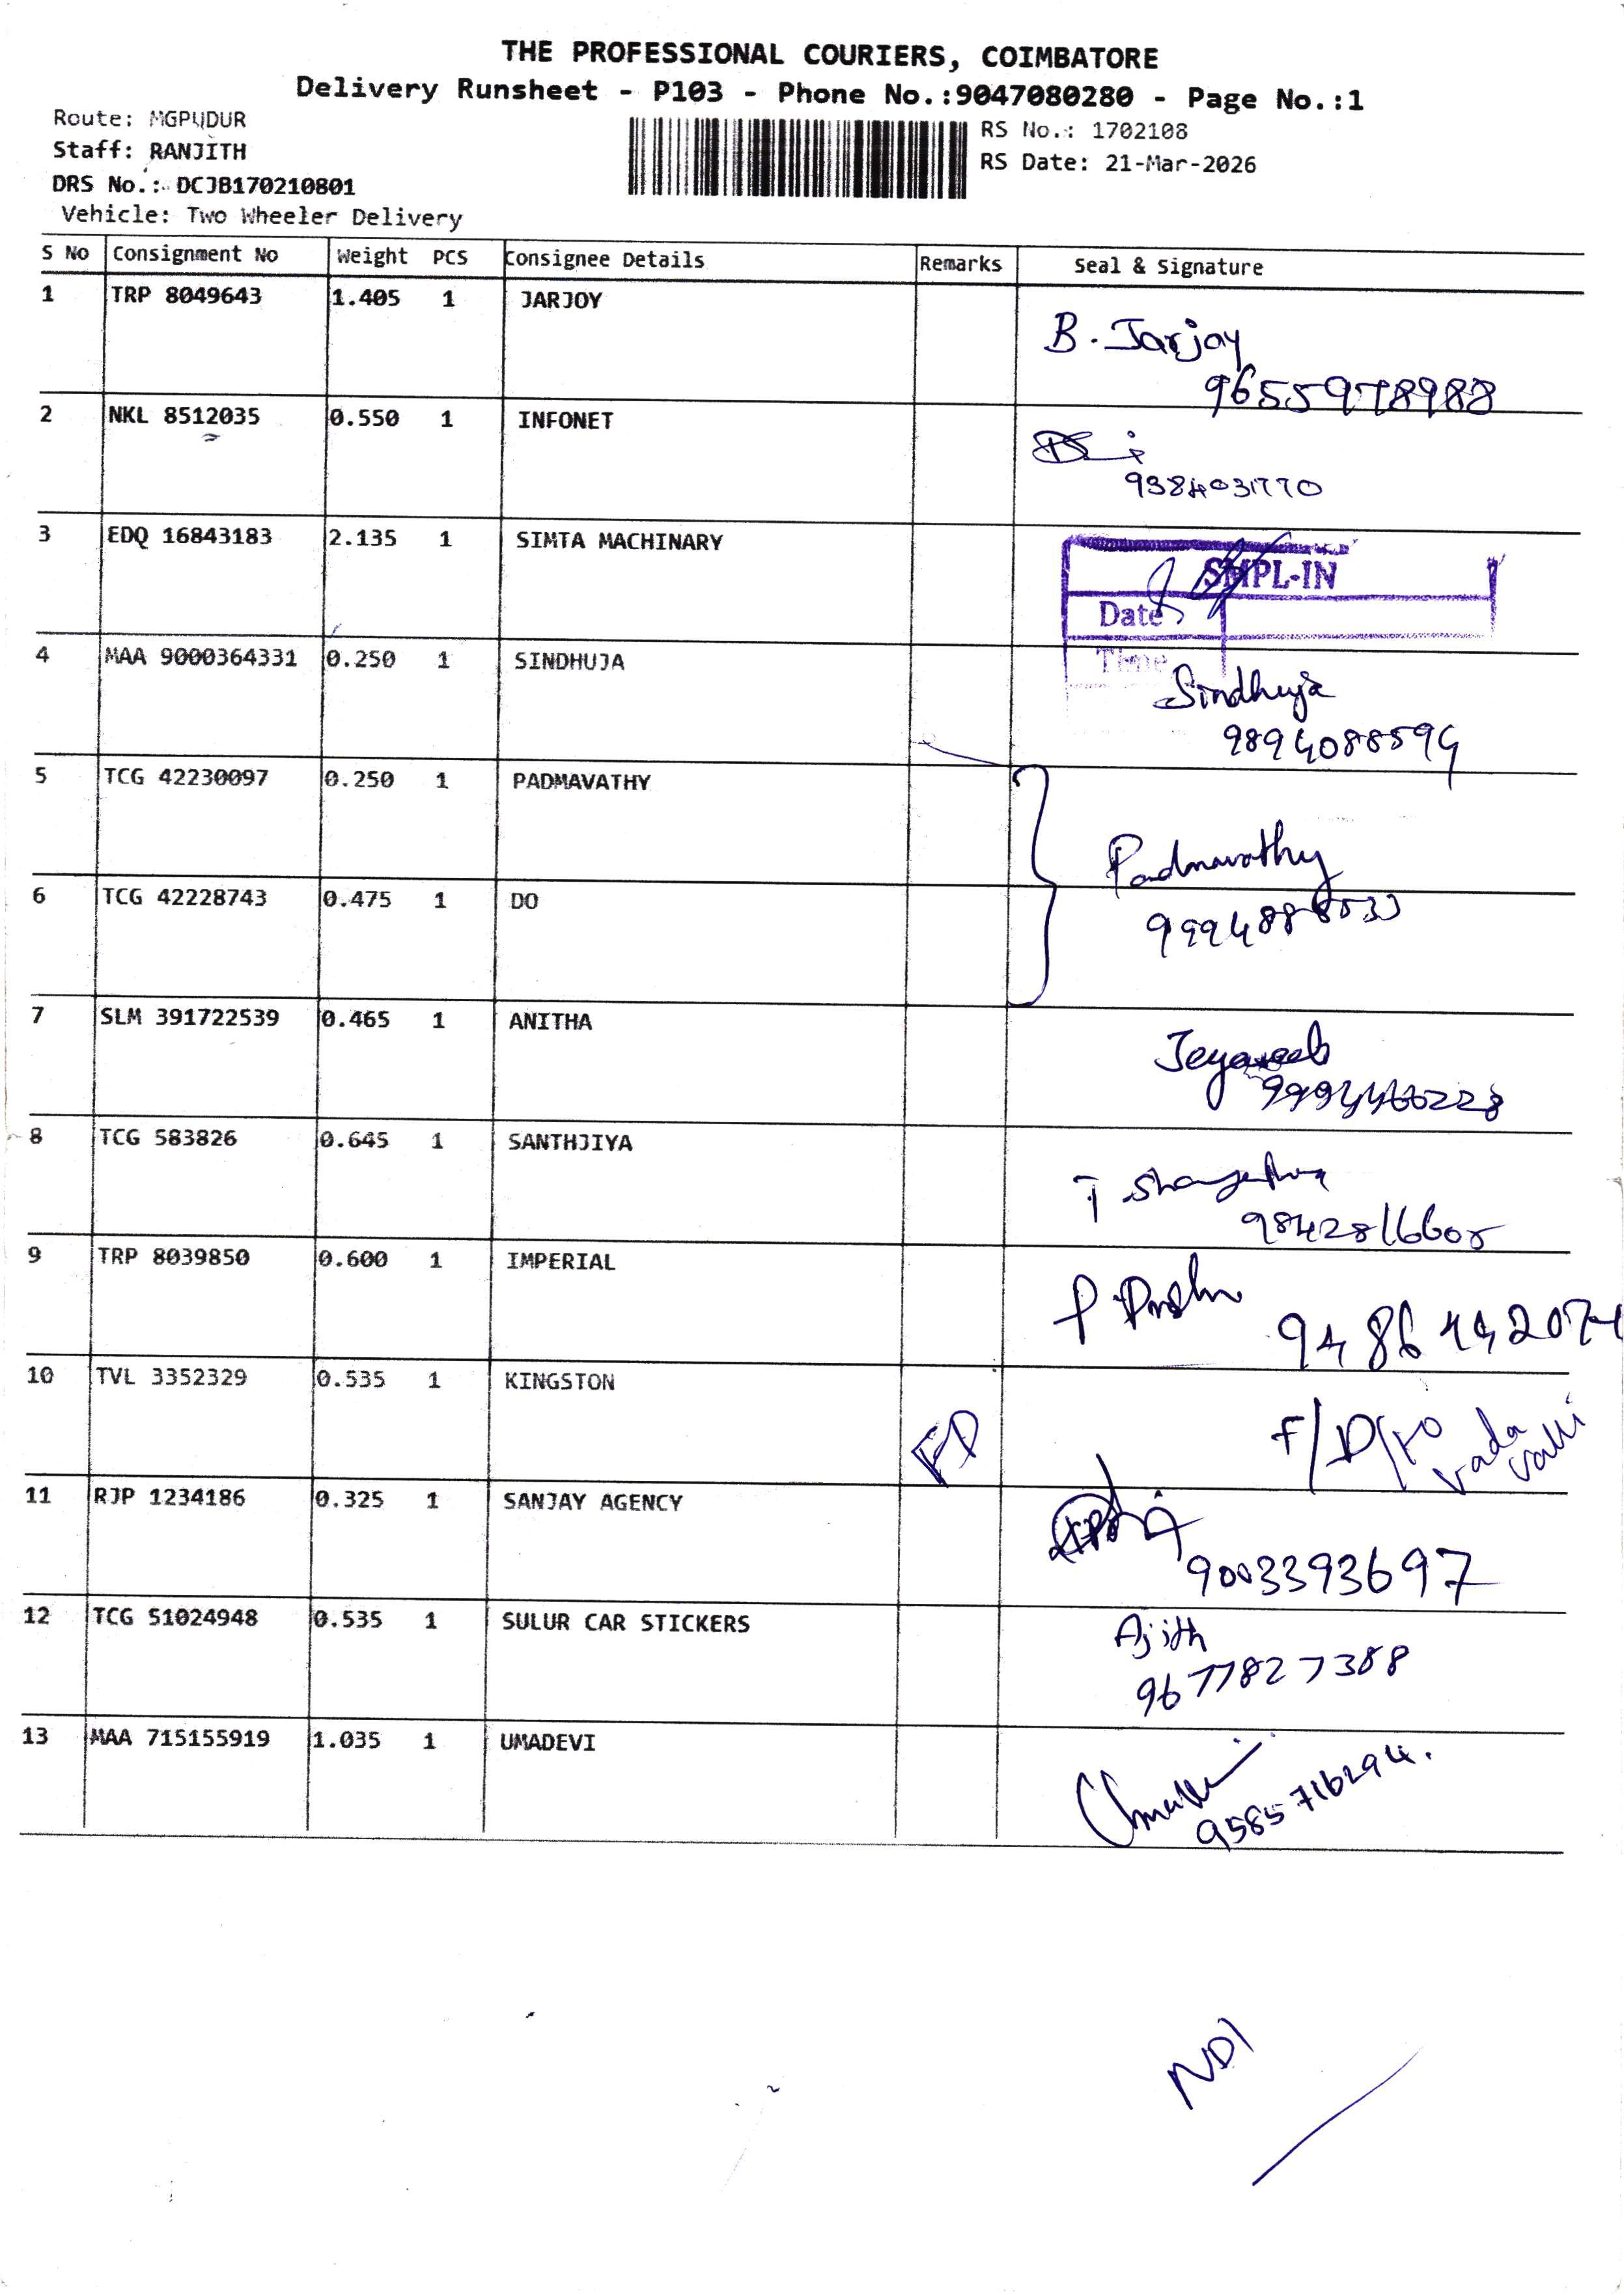 THE PROFESSIONAL COURIERS, COIMBATORE
Delivery Runsheet - P103 - Phone No.:9047080280 - Page No.:1
Route: MGPUDUR
Staff: RANJITH
DRS No.: DCJB170210801
Vehicle: Two Wheeler Delivery
RS No.: 1702108
RS Date: 21-Mar-2026
S No Consignment No Weight PCS Consignee Details Remarks Seal & Signature
1 TRP 8049643 1.405 1 JARJOY
B. Jarjoy
9655978988
2 NKL 8512035 0.550 1 INFONET
9384031770
3 EDQ 16843183 2.135 1 SIMTA MACHINARY
SMPL-IN
Date
Time
4 MAA 9000364331 0.250 1 SINDHUJA
Sindhuja
9894088594
5 TCG 42230097 0.250 1 PADMAVATHY
Padmavathy
6 TCG 42228743 0.475 1 DO
7 SLM 391722539 0.465 1 ANITHA
8 TCG 583826 0.645 1 SANTHJIYA
9842816608
9 TRP 8039850 0.600 1 IMPERIAL
10 TVL 3352329 0.535 1 KINGSTON
FD F/D/to vada valli
11 RJP 1234186 0.325 1 SANJAY AGENCY
9003393697
12 TCG 51024948 0.535 1 SULUR CAR STICKERS
Ajith
9677827388
13 MAA 715155919 1.035 1 UMADEVI
9585716294.
ND1